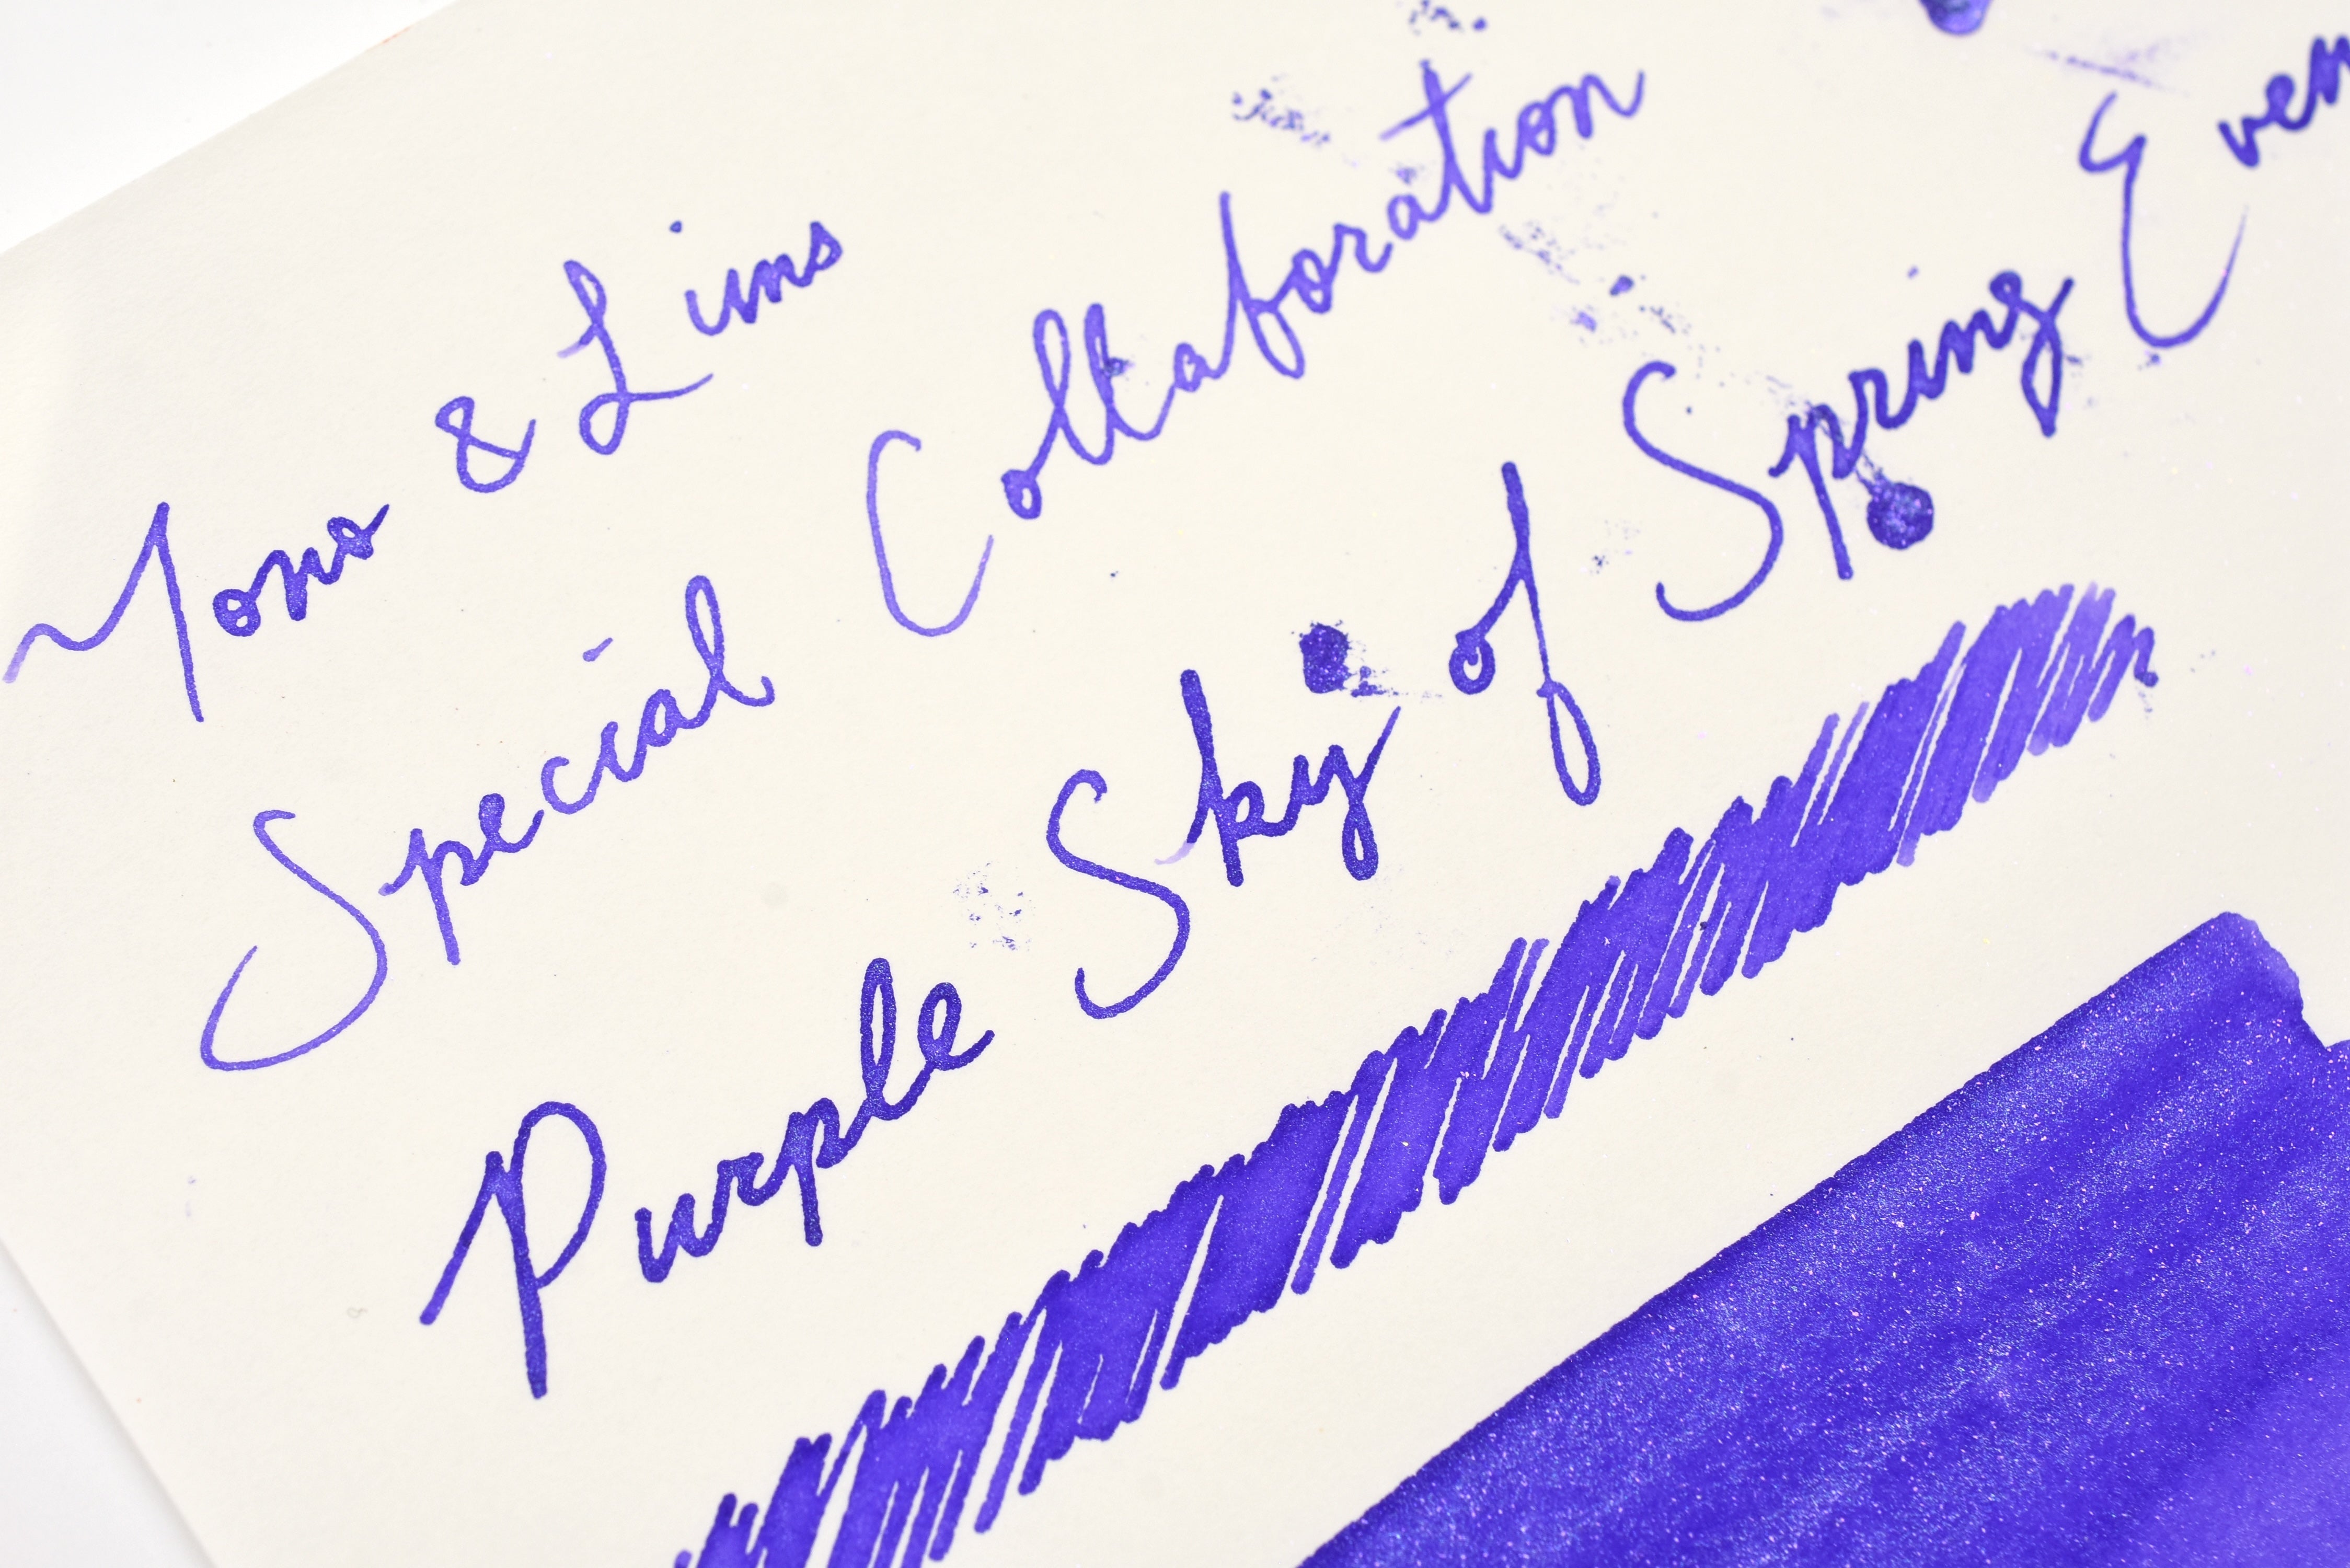 Tono & Lims
Special Collaboration
Purple Sky of Spring Even